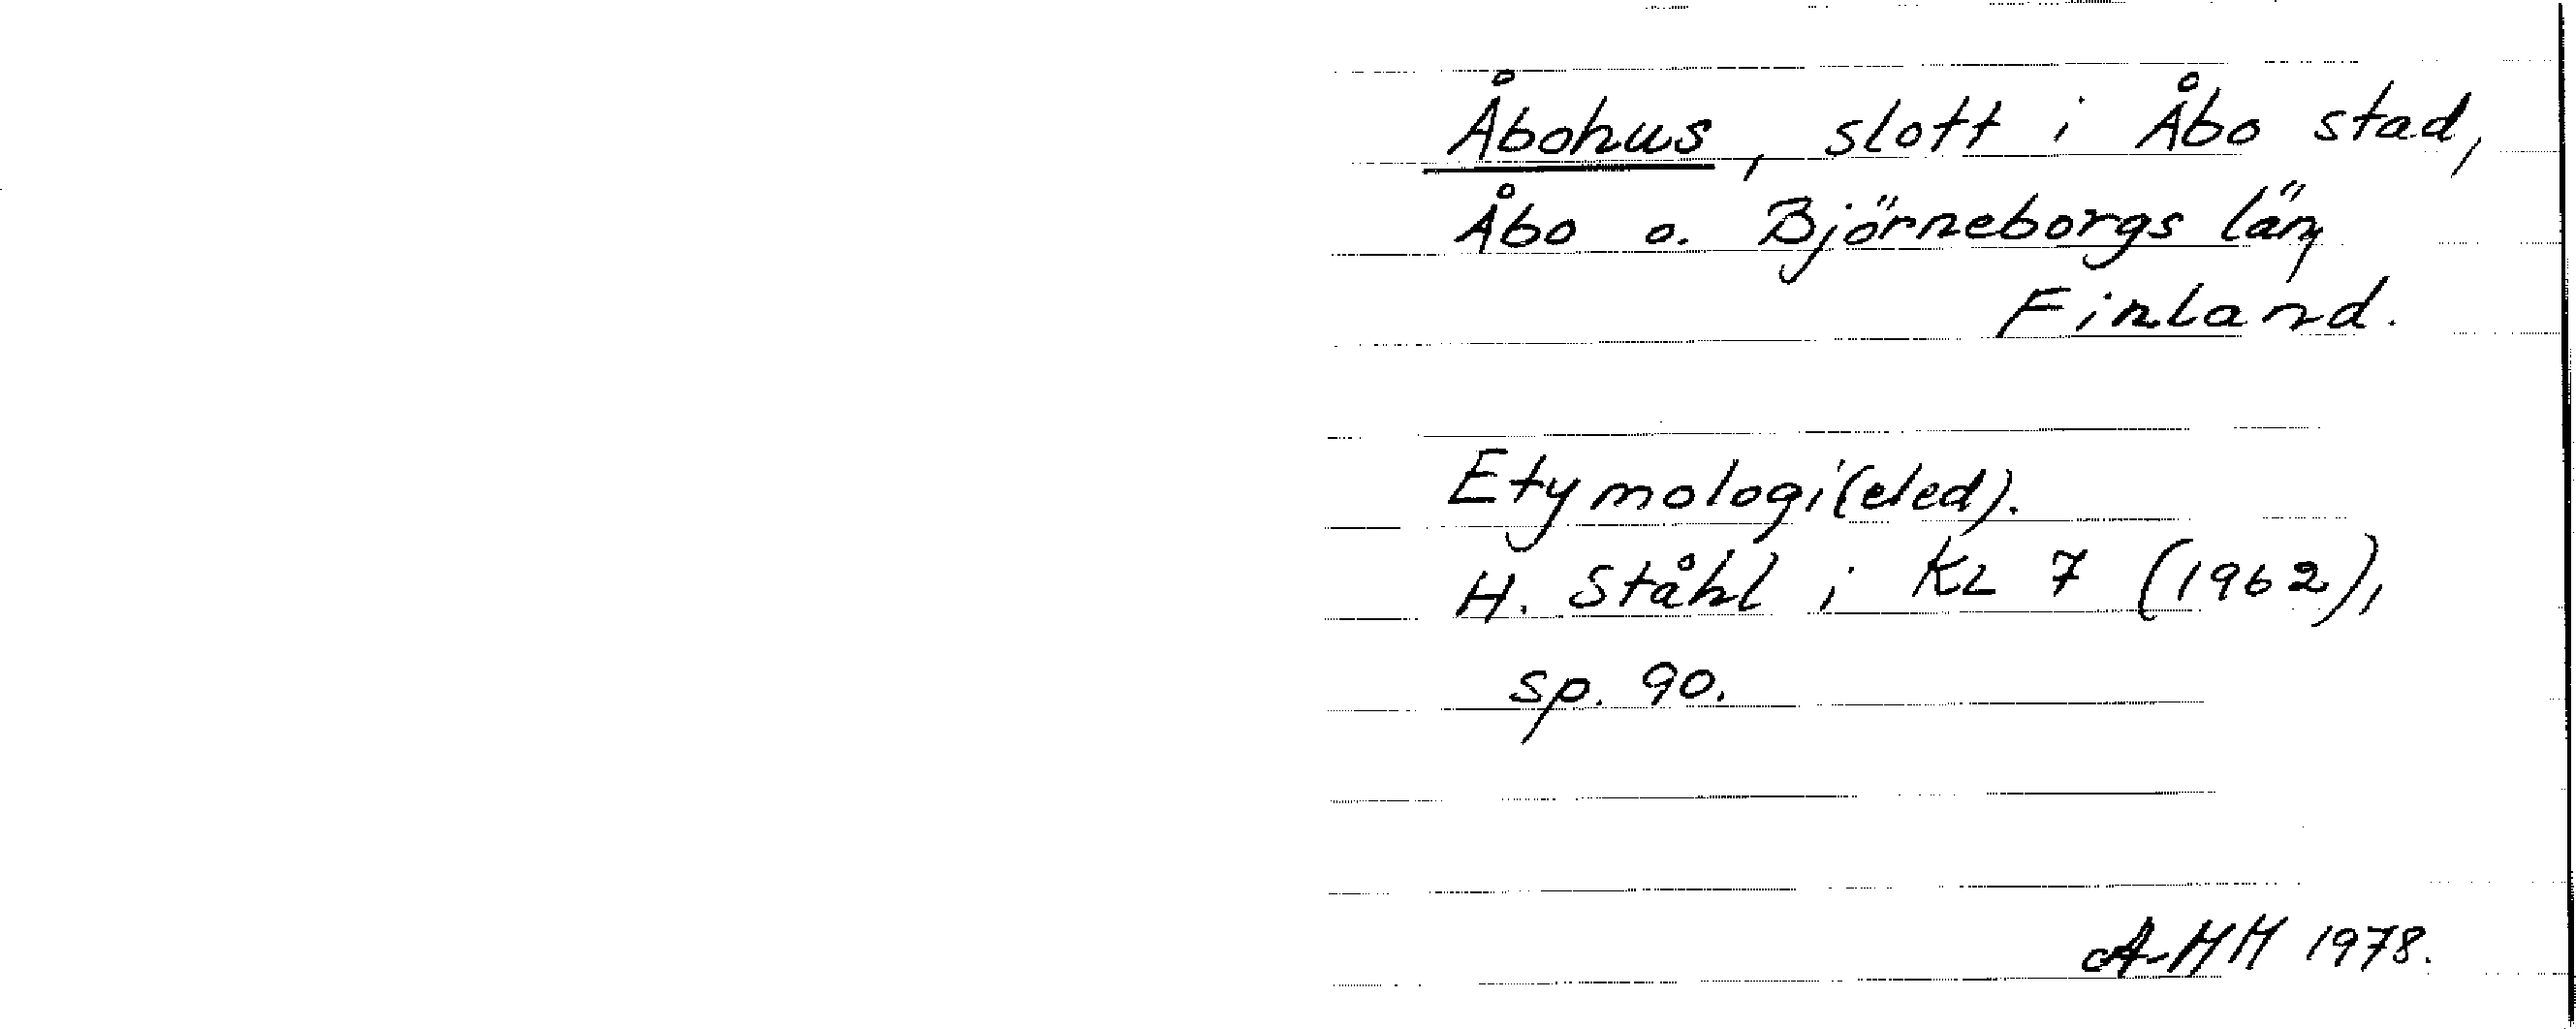 Åbohus, slott i Åbo stad,
Åbo o. Björneborgs län,
Finland.
Etymologi(eled).
H. Ståhl i KL 7 (1962),
sp. 90.
A-MM 1978.